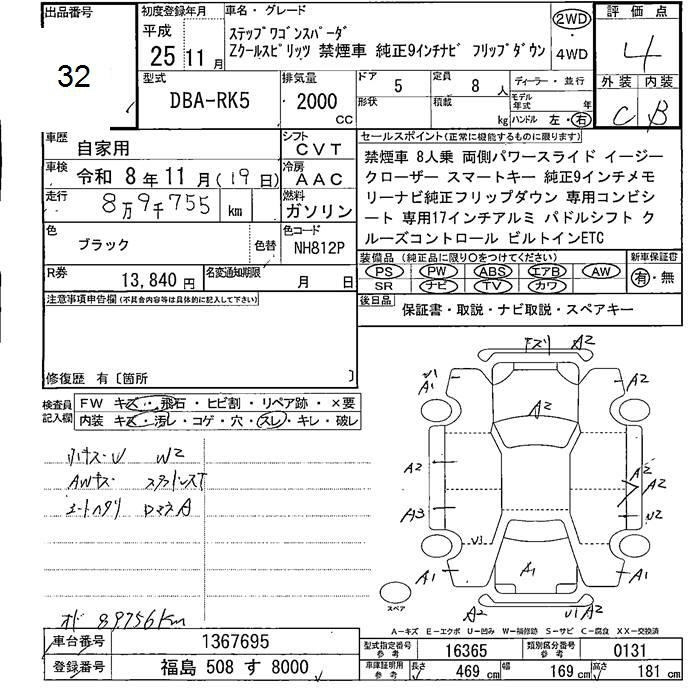 出品番号
32
初度登録年月 車名・グレード
平成
25 11 月
ステップワゴンスパーダ
Zクールスピリッツ 禁煙車 純正9インチナビ フリップダウン
2WD
・
4WD
評価点
4
外装 内装
C B
型式
DBA-RK5
排気量
2000
CC
ドア 5
形状
定員 8 人
積載 kg
ディーラー・並行
モデル年式 年
ハンドル 左・右
車歴
自家用
シフト
CVT
車検
令和 8 年 11 月 (19 日)
冷房
AAC
走行
8万9千755 km
燃料
ガソリン
色
ブラック
色替
色コード
NH812P
R券
13,840 円
名変通知期限
月 日
セールスポイント(正常に機能するものに限ります)
禁煙車 8人乗 両側パワースライド イージー
クローザー スマートキー 純正9インチメモ
リーナビ純正フリップダウン 専用コンビシ
ート 専用17インチアルミ パドルシフト ク
ルーズコントロール ビルトインETC
装備品(純正品に限り○をつけてください)
PS PW ABS エアB AW
SR ナビ TV カワ
新車保証書
有・無
後日品
保証書・取説・ナビ取説・スペアキー
注意事項申告欄(不具合内容等は具体的に記入して下さい)
修復歴 有〔箇所 〕
検査員
記入欄
FW キズ・飛石・ヒビ割・リペア跡・×要
内装 キズ・汚レ・コゲ・穴・スレ・キレ・破レ
W2
AWキズ
A
オド 89756km
A2
U1
A1
A2
A2
A2
A2
A2
A3
U2
U1
A1
A1
A1
A2
U1 A2
スペア
A-キズ E-エクボ U-凹み W-補修跡 S-サビ C-腐食 XX-交換済
車台番号
1367695
登録番号
福島 508 す 8000
型式指定番号
参考
16365
類別区分番号
参考
0131
車庫証明用
参考
長さ 469 cm 幅 169 cm 高さ 181 cm